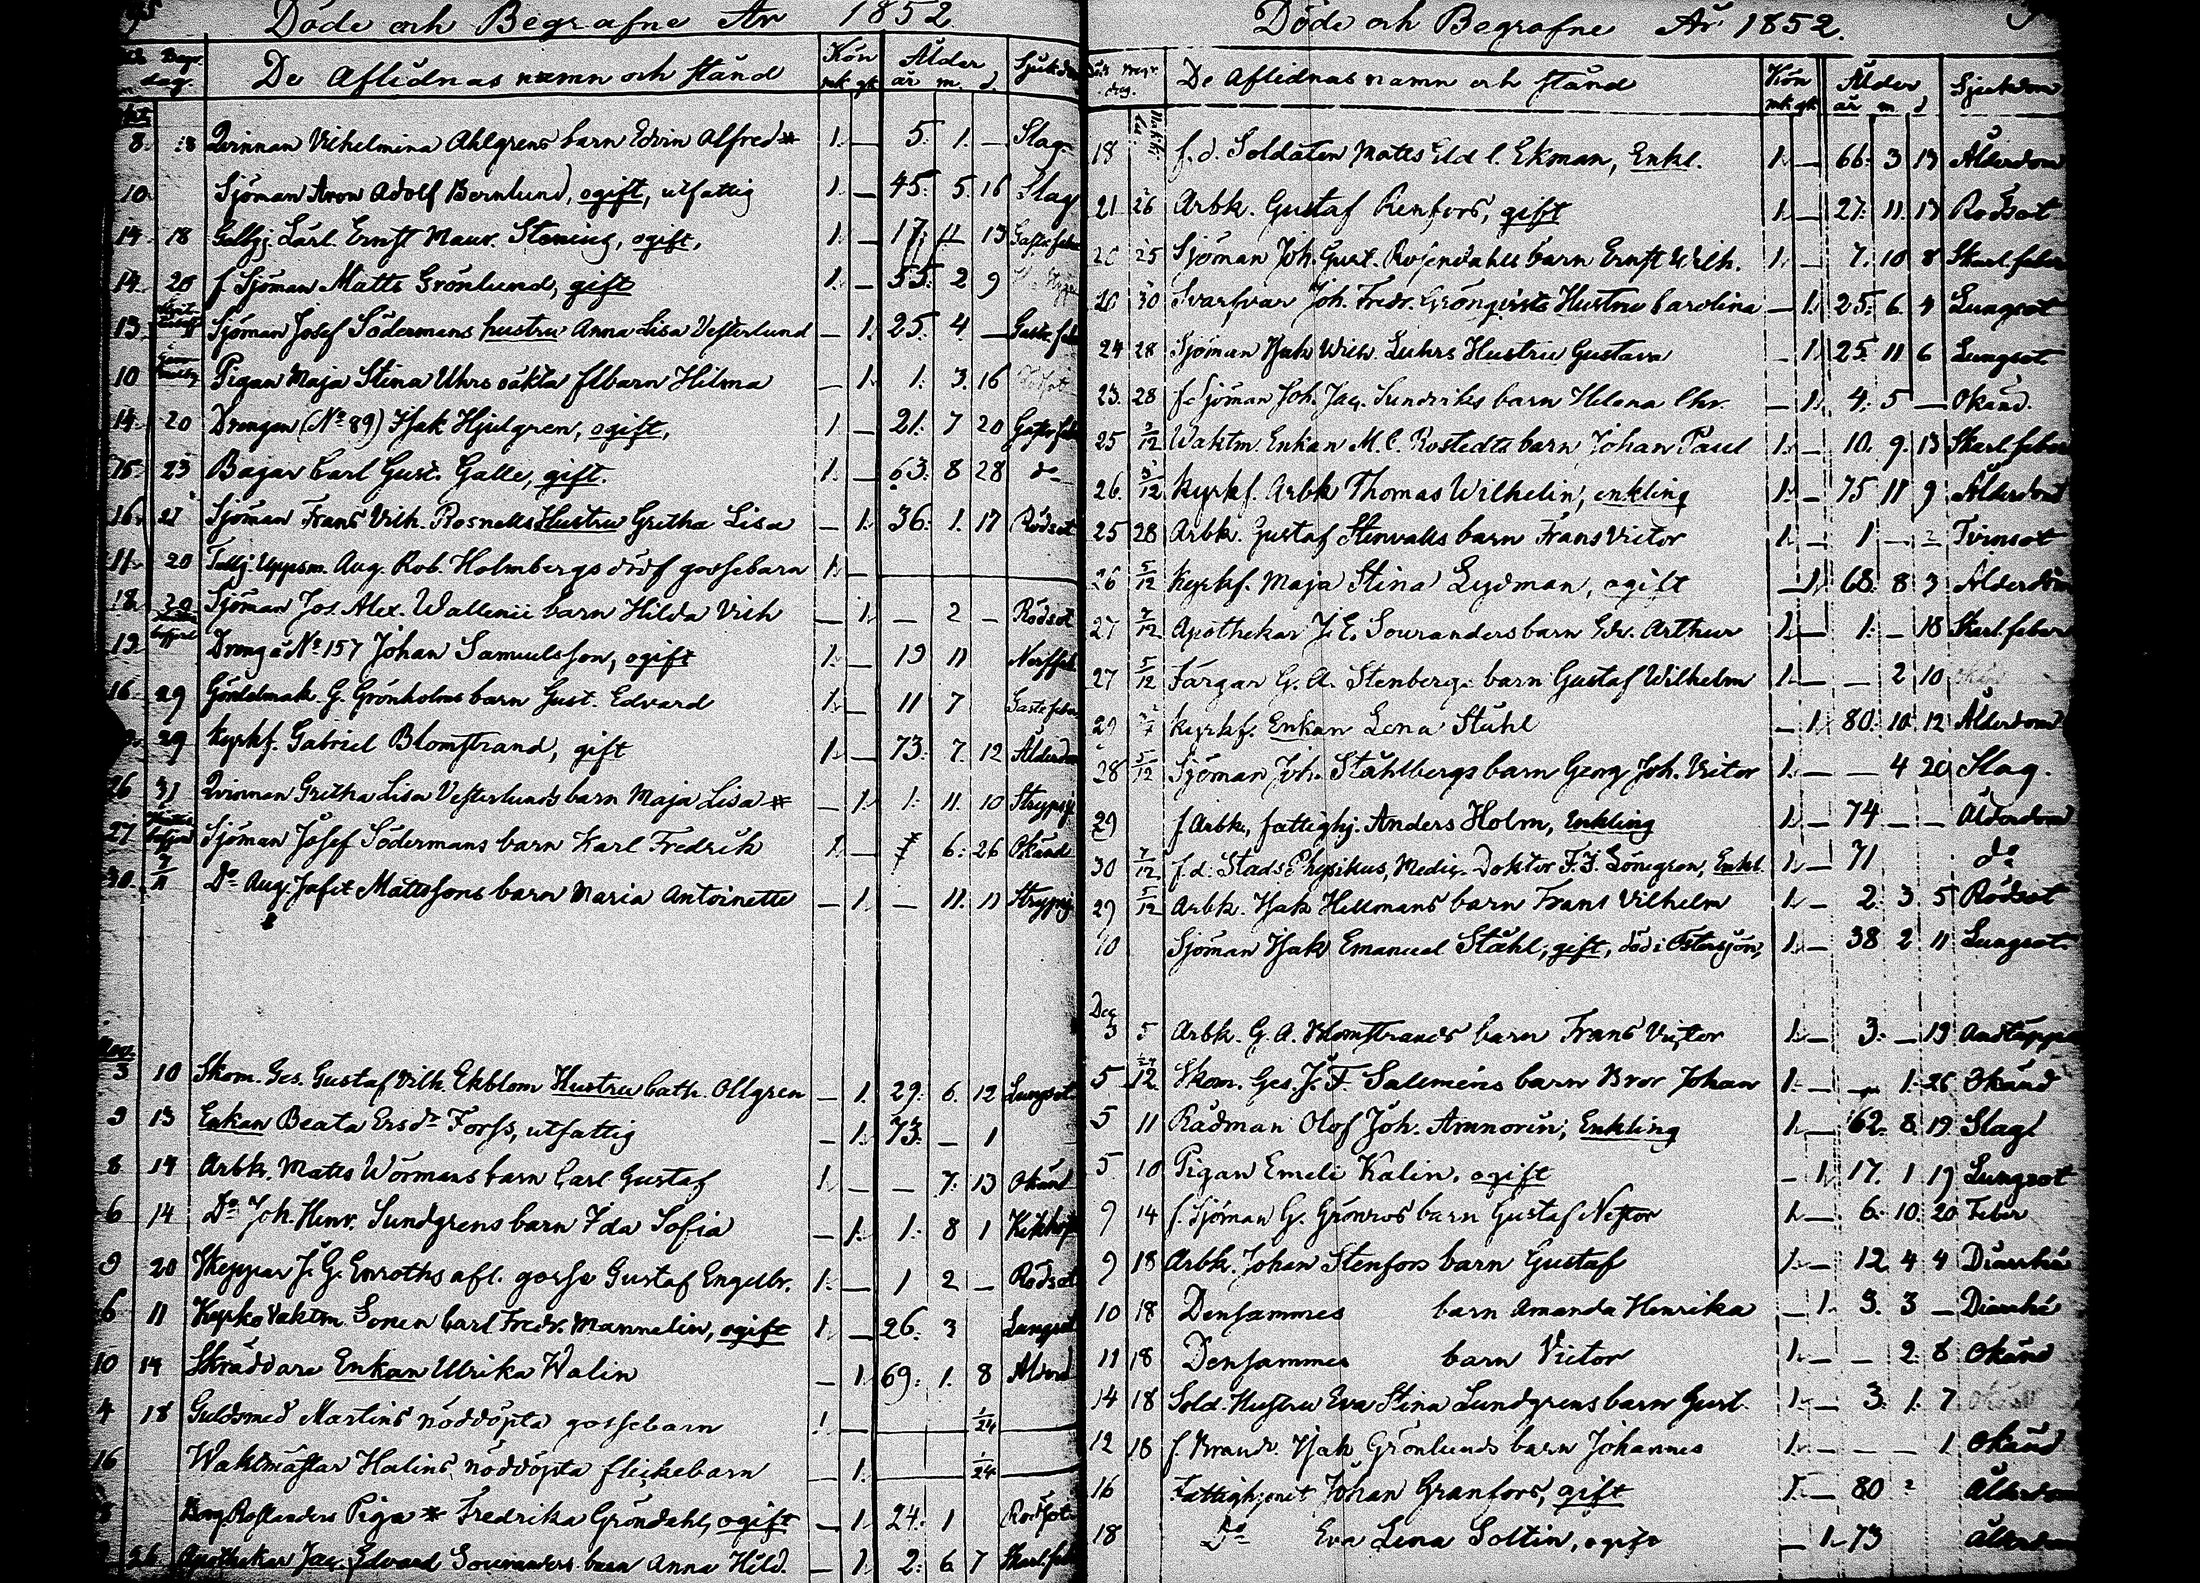 Döde och Begrafne År 1852
De Aflidnas namn och stånd Kön mk qk Ålder år m. d. Sjukdom
8. 18 Qvinnan Vilhelmina Ahlgrens barn Edvin Alfred 1. — 5. 1. — Slag
10. Sjöman Aron Adolf Bernlund, ogift, utfattig 1. — 45. 5. 16 Slag
14 18 Ernst Maur. ogift, 1. — 17. 11 13
14. 20 f Sjöman Matts Grönlund, gift 1. — 55. 2 9
13. Sjöman Josef Södermans hustru Anna Lisa Vesterlund — 1. 25. 4. —
10 Pigan Maja Stina Uhrs oäkta flbarn Hilma — 1. 1. 3. 16
14. 20 Drengen (No 89) Isak Hjulgren, ogift, 1. — 21. 7 20
15. 23 Bagar Carl Gust. Galle, gift. 1. — 63. 8 28 do
16. 27 Sjöman Frans Vilh. Rosnells Hustru Gretha Lisa — 1. 36. 1. 17 Rödsot
11. 20 Tullj. Uppsm. Aug. Rob. Holmbergs dödf gossebarn 1. —
18. 20 Sjöman Jos. Alex. Wallenii barn Hilda Vilh — 1. — 2 — Rödsot
19. Dreng å No 157 Johan Samuelsson, ogift 1. — 19 11
16. 29 Görtelmak. G. Grönholms barn Gust. Edvard 1. — 11 7
29 Kyrkf. Gabriel Blomstrand, gift 1. — 73. 7. 12 Ålderdom
26 31 Qvinnan Gretha Lisa Vesterlunds barn Maja Lisa — 1. 1. 11. 10 Strypsj.
27 Sjöman Josef Södermans barn Karl Fredrik 1. — 6. 26 Okänd
30. 7/11 Do Aug. Jafet Mattssons barn Maria Antoinette — 1. — 11. 11 Strypsj.
Nov.
3 10 Skom. Ges. Gustaf Vilh. Ekblom Hustru Cath. Ollgren — 1. 29. 6. 12 Lungsot.
9 13 Enkan Beata Ersdr Forss, utfattig — 1. 73. — 1
8 14 Arbk. Matts Wörmans barn Carl Gustaf 1. — — 7. 13 Okänd
6 14 Do Joh. Henr. Sundgrens barn Ida Sofia — 1. 1. 8 1 Kikhosta
9 20 Skeppar J. G. Enroths afl. gosse Gustaf Engelbr. 1. — 1 2 — Rödsot
6 11 Kyrko Vaktm. Sonen Carl Fredr. Mannelin, ogift 1. — 26. 3 Lungsot
10 14 Skräddare Enkan Ulrika Walin — 1. 69. 1. 8 Ålderd
4 18 Guldsmed Martins nöddöpta gossebarn 1. — 1/24
16 Waktmästar Halins nöddöpta flickebarn — 1. 1/24
Piga Fredrika Gröndahl, ogift — 1. 24. 1 Rödsot
26 Apothekar Jac. Edvard Souranders barn Anna Hild. — 1. 2. 6 7 Skarl.feb
Döde och Begrafne År 1852.
De Aflidnas namn och stånd Kön mk qk Ålder år m d Sjukdom
18 f. d. Soldaten Matts Eld l. Ekman, Enkl. 1. — 66. 3 13 Ålderdom
21 26 Arbk. Gustaf Renfors, gift 1. — 27. 11. 13 Rödsot
20 25 Sjöman Joh. Gust. Rosendahls barn Ernst Wilh. 1. — 7. 10 8 Skarl. feber
20 30 Svarfvar Joh. Fredr. Grönqvists Hustru Carolina — 1. 25. 6. 4 Lungsot
24 28 Sjöman Isak Wilh. Luhrs Hustru Gustava — 1. 25. 11 6 Lungsot
23. 28 f. Sjöman Joh. Jac. Sundriks barn Helena Chr. — 1. 4. 5 — Okänd.
25 Waktm. Enkan M. C. Rostedts barn Johan Paul 1. — 10. 9. 13 Skarl. feber
26. Kyrkf. Arbk Thomas Wilhelin, enkling 1. — 75 11 9 Ålderdom
25 28 Arbk. Gustaf Stenvalls barn Frans Victor 1. — 1 — 2 Tvinsot
26 5/12 Kyrkf. Maja Stina Lydman, ogift — 1. 68. 8 3 Ålderdom
27 7/12 Apothekar J. E. Souranders barn Edv. Arthur 1. — 1. — 18 Skarl. feber
27 5/12 Färgar G. A. Stenbergs barn Gustaf Wilhelm 1. — — 2 10
29 Kyrkf. Enkan Lena Ståhl — 1. 80. 10. 12 Ålderdom
28 5/12 Sjöman Joh. Ståhlbergs barn Georg Joh. Victor 1. — — 4 20 Slag.
29 f Arbk, fattighj. Anders Holm, Enkling 1. — 74 — — Ålderdom
30 7/12 f. d. Stads Physikus, Medic. Doktor F. J. Lönegren, Enkl. 1. — 71 do
29 5/12 Arbk. Isak Hellmans barn Frans Vilhelm 1. — 2. 3. 5 Rödsot
10 Sjöman Isak Emanuel Ståhl, gift, död i Östersjön, 1. — 38 2 11 Lungsot.
Dec
3 5 Arbk. G. A. Blomstrands barn Frans Victor 1. — 3. — 19 Andtäppa
5 Skom. Ges. J. F. Saleméns barn Bror Johan 1. — — 1. 26 Okänd
5 11 Rådman Olof Joh. Ammorin, Enkling 1. — 62. 8. 19 Slag.
5. 10 Pigan Emeli Kalin, ogift — 1. 17. 1 19 Lungsot
9 14 f. Sjöman G. Grönros barn Gustaf Nestor 1. — 6. 10. 20 Feber
9 18 Arbk. Johan Stenfors barn Gustaf 1. — 12. 4 4 Diarrhé
10 18 Densammes barn Amanda Henrika — 1. 9. 3 — Diarrhé
11 18 Densammes barn Victor 1. — — 2. 8 Okänd
14 18 Sold. Hustru Eva Stina Lundgrens barn Gust. 1. — 3. 1. 7
12 18 f. Brandv. Isak Grönlunds barn Johannes 1. — — — 1 Okänd
16 Fattighjonet Johan Granfors, gift 1. — 80 Ålderdom
18 Do Eva Lena Soltin, ogift — 1. 73 Ålderdom